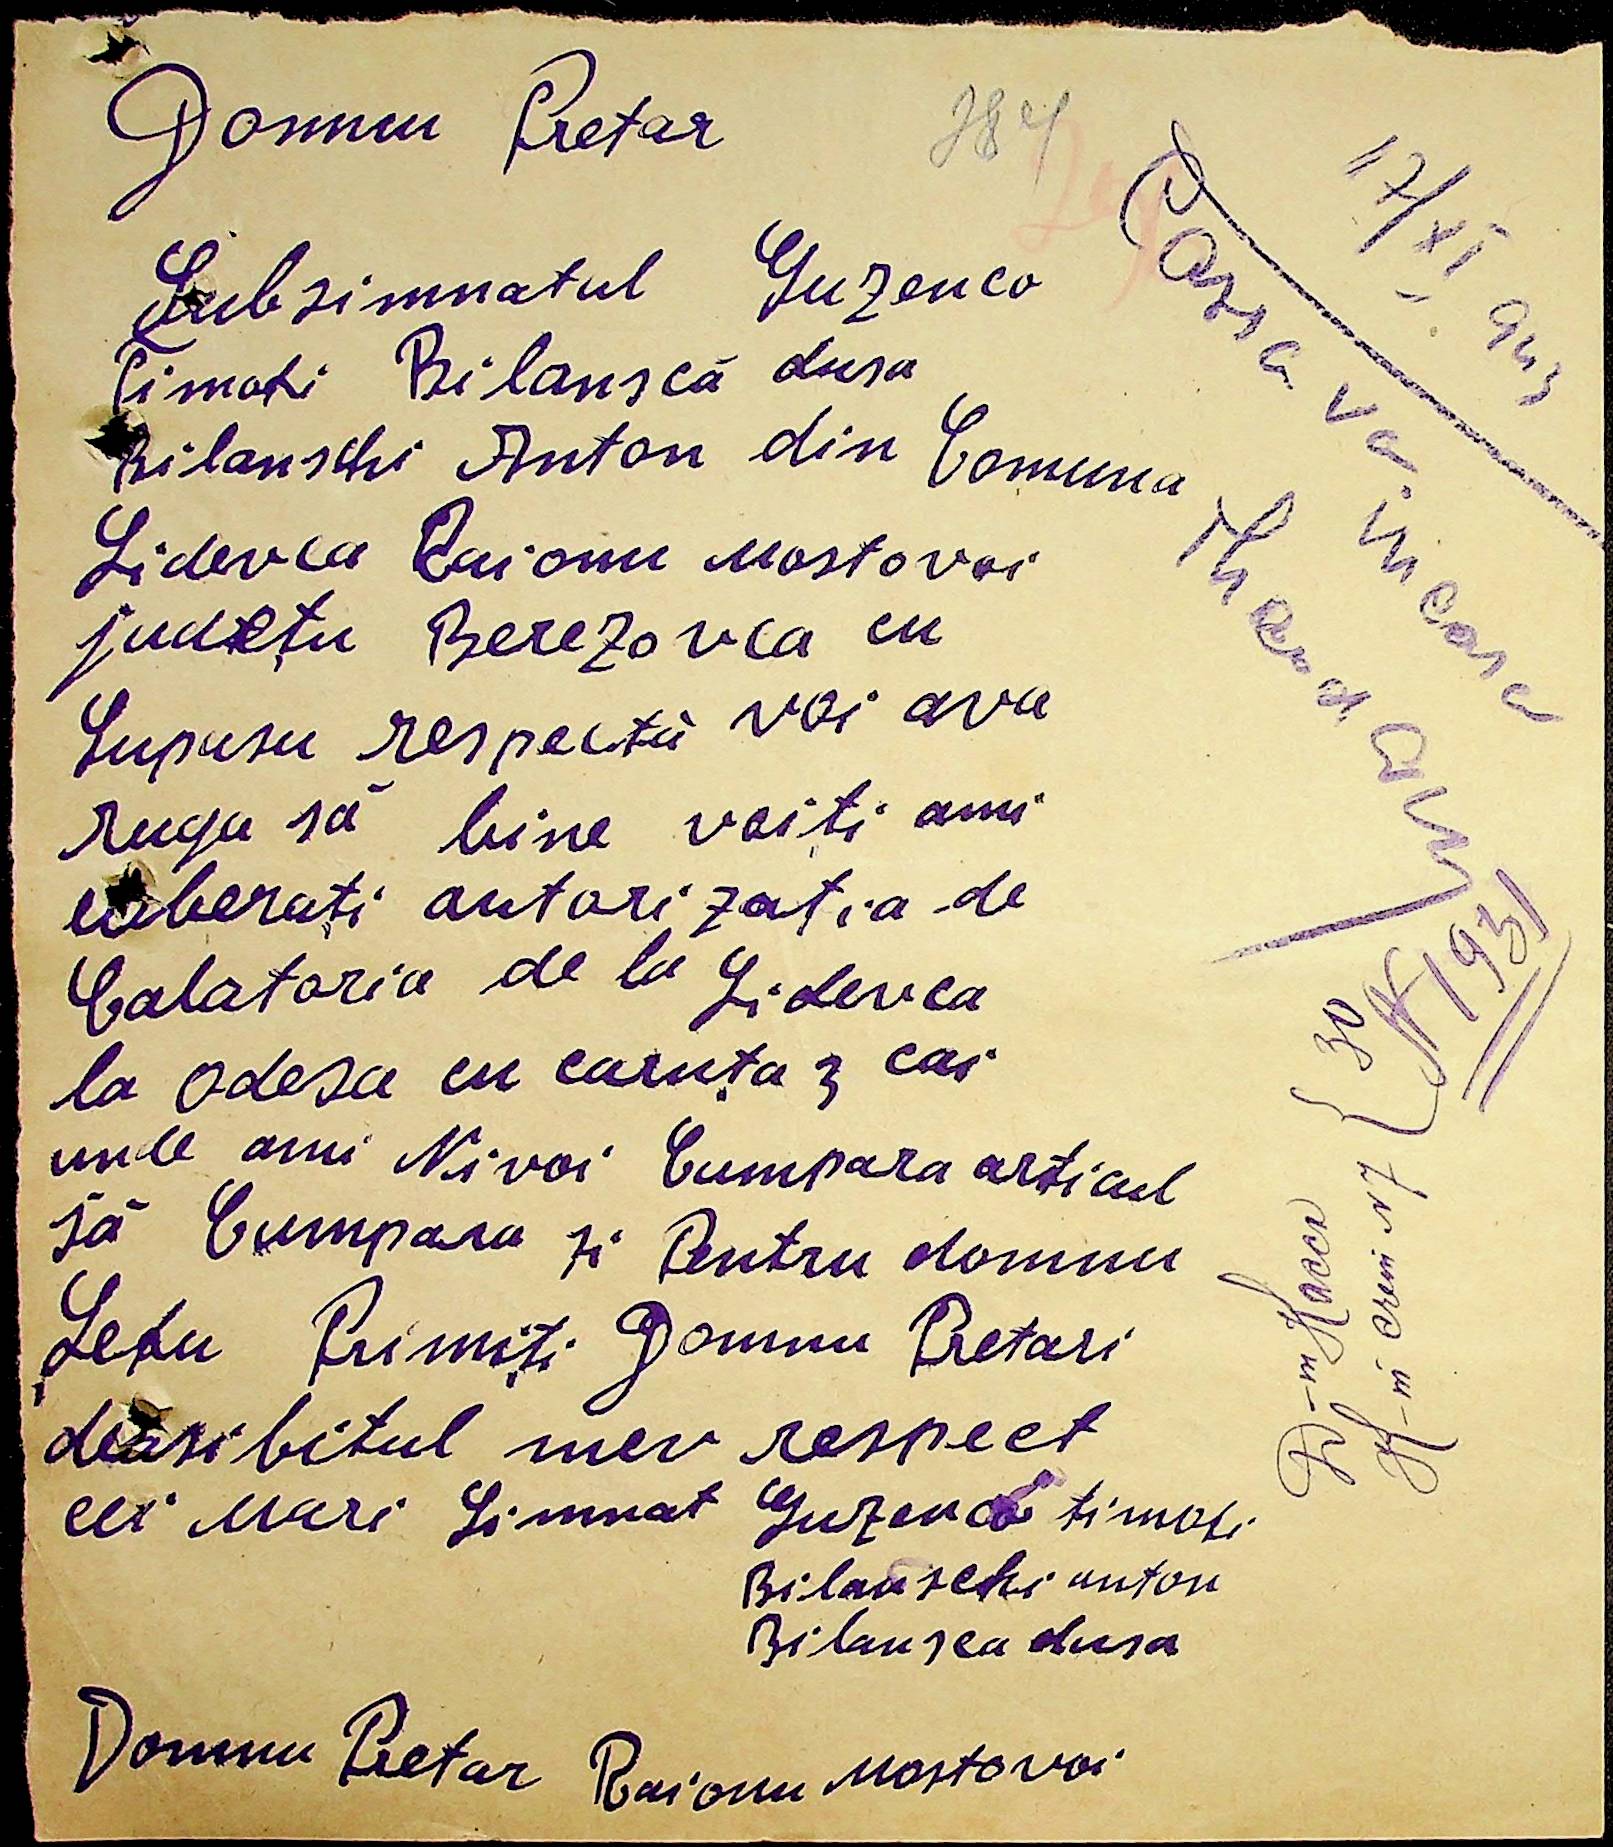 Domnu Pretar
384
Subsimnatul Guzenco
Timoti Bilanscă dusa
Bilanschi Anton din Comuna
Sidevca Raionu Mostovoi
județu Berezovca cu
Supusu respectu voi ava
ruga să bine voiți ami
eliberați autorizația de
Calatoria de la Sidevca
la odesa cu caruța 3 cai
unde ami Nivoi Cumpara articul
să Cumpara și Pentru domnu
Sefu Primiți Domnu Pretari
deosibitul mev respect
cei Mari Simnat Guzenco timoti
Bilanschi anton
Bilansca dusa
Domnu Pretar Raionu Mostovoi
17/XI 943
Cassa va incasa
N 1931
30